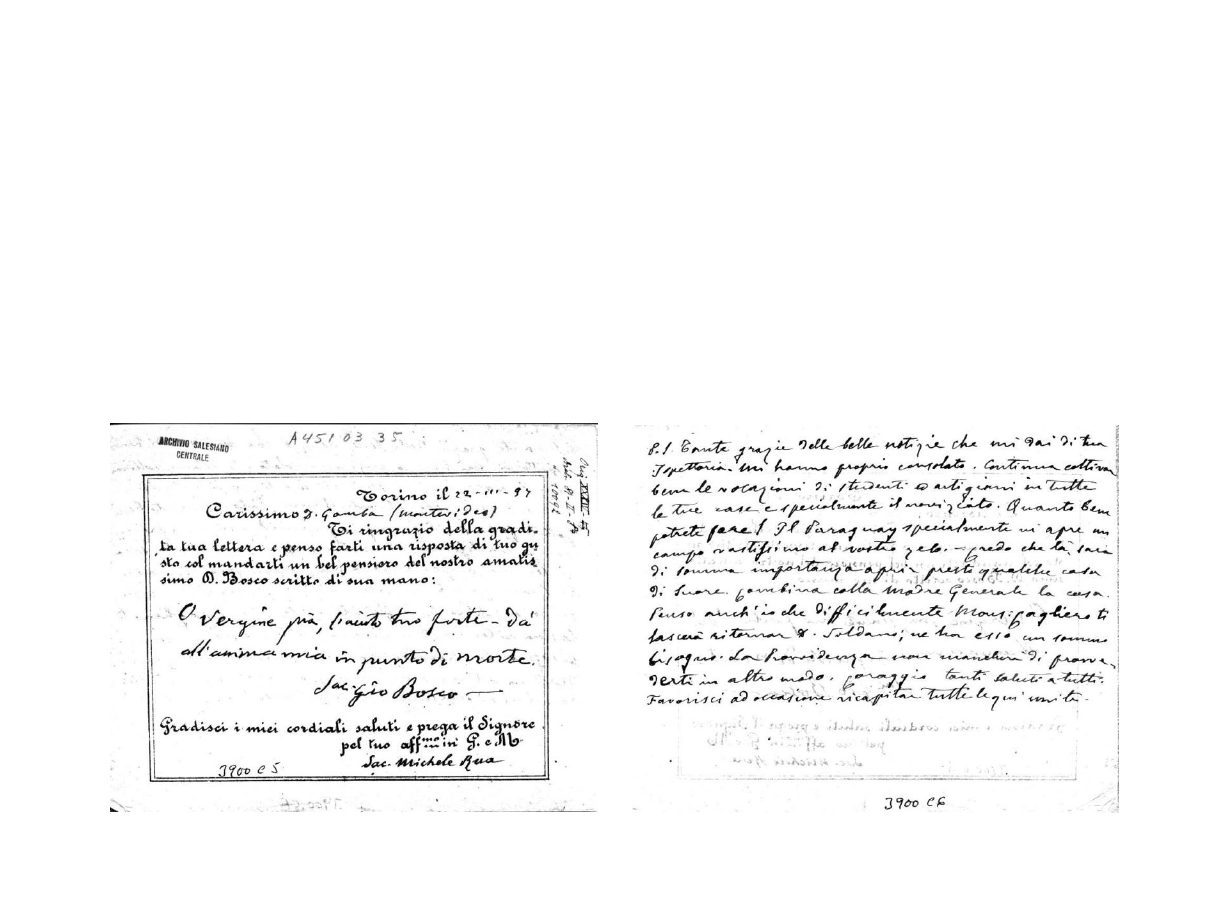 ARCHIVIO SALESIANO
CENTRALE
A 451 03 35
Torino il 22-III-97
Carissimo D. Gamba (Montevideo)
Ti ringrazio della gradi-
ta tua lettera e penso farti una risposta di tuo gu
sto col mandarti un bel pensiero del nostro amatis
simo D. Bosco scritto di sua mano:
O Vergine pia, l'aiuto tuo forte - dà
all'anima mia in punto di morte.
Sac. Gio Bosco
Gradisci i miei cordiali saluti e prega il Signore
pel tuo aff.mo in G. e M.
Sac. Michele Rua
3900 C 5
P.S. Tante grazie delle belle notizie che mi dai di tua
Ispettoria. Mi hanno proprio consolato. Continua coltivar
bene le vocazioni di studenti e artigiani in tutte
le tue case e specialmente il noviziato. Quanto bene
potrete fare! Il Paraguay specialmente vi apre un
campo vastissimo al vostro zelo. Credo che là sarà
di somma importanza aprir presto qualche casa
di Suore. Combina colla Madre Generale la cosa.
Penso anch'io che difficilmente Mons. Cagliero ti
lascerà ritornar D. Soldano; ne ha esso un sommo
bisogno. La Provvidenza non mancherà di provve-
derti in altro modo. Coraggio tanti saluti a tutti.
Favorisci ad occasione ricapitar tutte le qui unite.
3900 C6